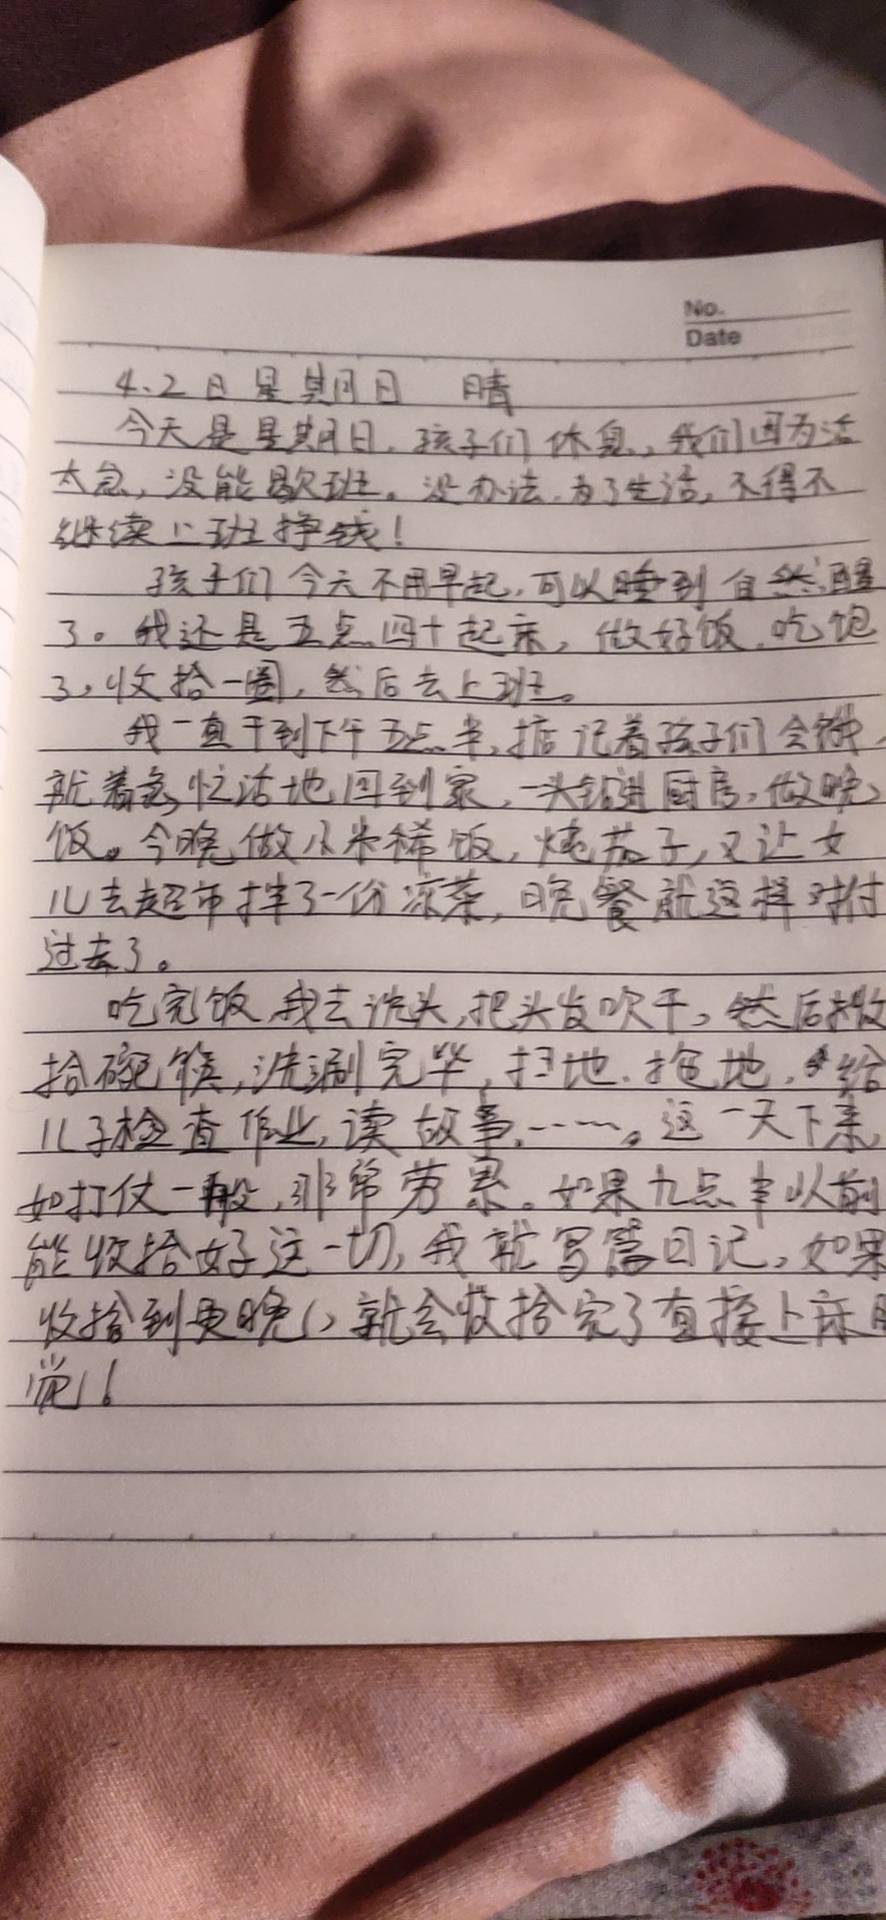 No.
Date
4.2日星期日 晴
今天是星期日,孩子们休息,我们因为活
太急,没能歇班。没办法,为了生活,不得不
继续上班挣钱!
孩子们今天不用早起,可以睡到自然醒
了。我还是五点四十起床,做好饭,吃饱
了,收拾一圈,然后去上班。
我一直干到下午五点半,掂记着孩子们会饿,
就着急忙活地回到家,一头钻进厨房,做晚
饭。今晚做小米稀饭,炖茄子,又让女
儿去超市拌了一份凉菜,晚餐就这样对付
过去了。
吃完饭,我去洗头,把头发吹干,然后收
拾碗筷,洗涮完毕,扫地.拖地,给
儿子检查作业,读故事,……。这一天下来,
如打仗一般,非常劳累。如果九点半以前
能收拾好这一切,我就写篇日记,如果
收拾到更晚,就会收拾完了直接上床
觉!